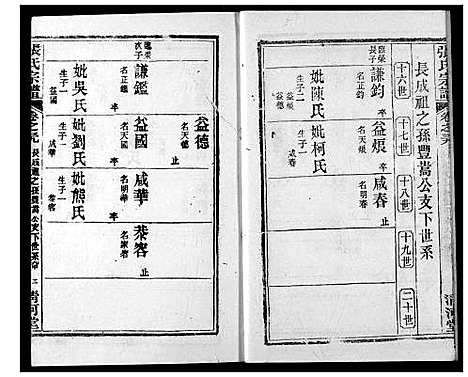 張氏宗譜
卷之九
清河堂
長成祖之孫豐蒿公支下世系
十六世
十七世
十八世
十九世
二十世
長子
謙鈞
名正鈞
卒
妣陳氏
生子二
益烺
名天烺
卒
妣柯氏
生子一
咸春
名明春
止
次子
謙鑑
名正鑑
卒
妣吳氏
生子一
益國
益德
名天德
止
益國
名天國
卒
妣劉氏
生子一
咸華
咸華
名明華
卒
妣熊氏
生子一
恭容
恭容
名家容
止
張氏宗譜
卷之九
長成祖之孫豐蒿公支下世系
二
清河堂